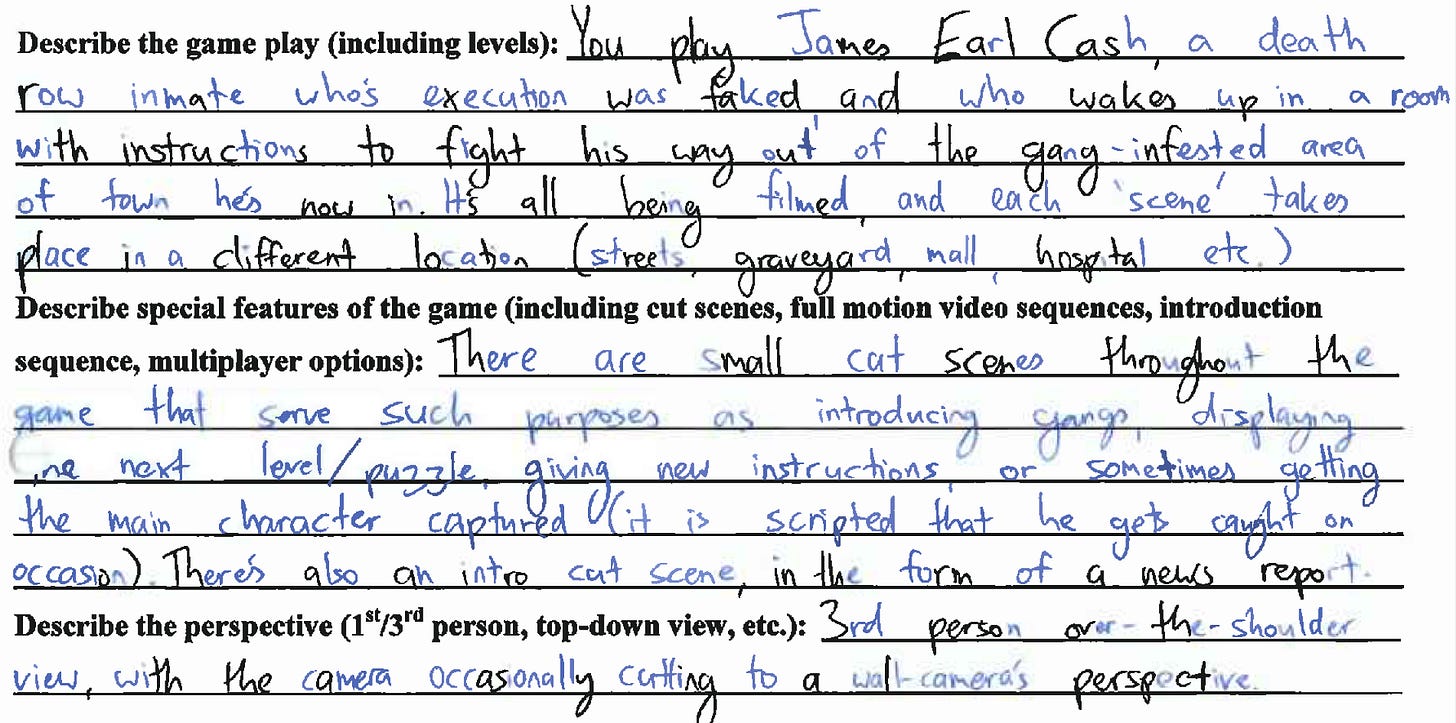 Describe the game play (including levels): You play James Earl Cash, a death
row inmate who's execution was faked and who wakes up in a room
with instructions to fight his way out of the gang-infested area
of town he's now in. It's all being filmed, and each 'scene' takes
place in a different location (streets, graveyard, mall, hospital etc.)
Describe special features of the game (including cut scenes, full motion video sequences, introduction
sequence, multiplayer options): There are small cut scenes throughout the
game that serve such purposes as introducing gangs, displaying
the next level/puzzle, giving new instructions, or sometimes getting
the main character captured (it is scripted that he gets caught on
occasion). There's also an intro cut scene, in the form of a news report.
Describe the perspective (1st/3rd person, top-down view, etc.): 3rd person over-the-shoulder
view, with the camera occasionally cutting to a wall-camera's perspective.